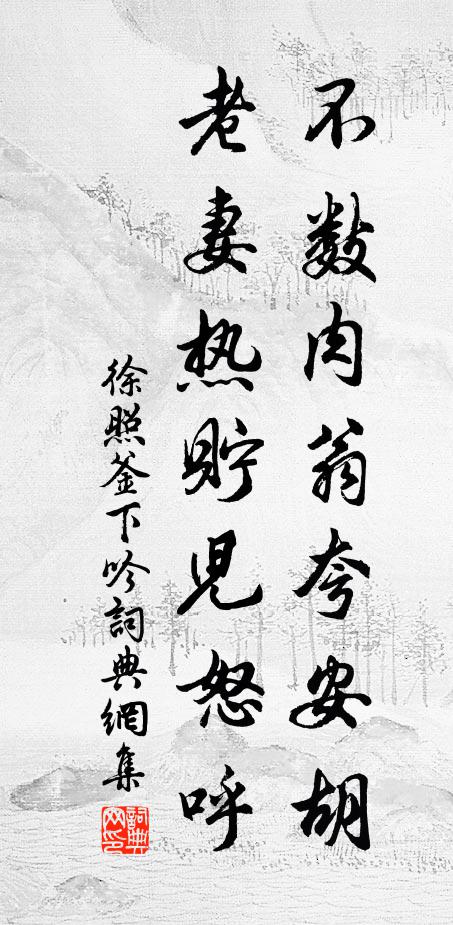 不数肉翁夸安胡
老妻热貯児怒呼
徐照釜下吟詞典網集
詞典網印